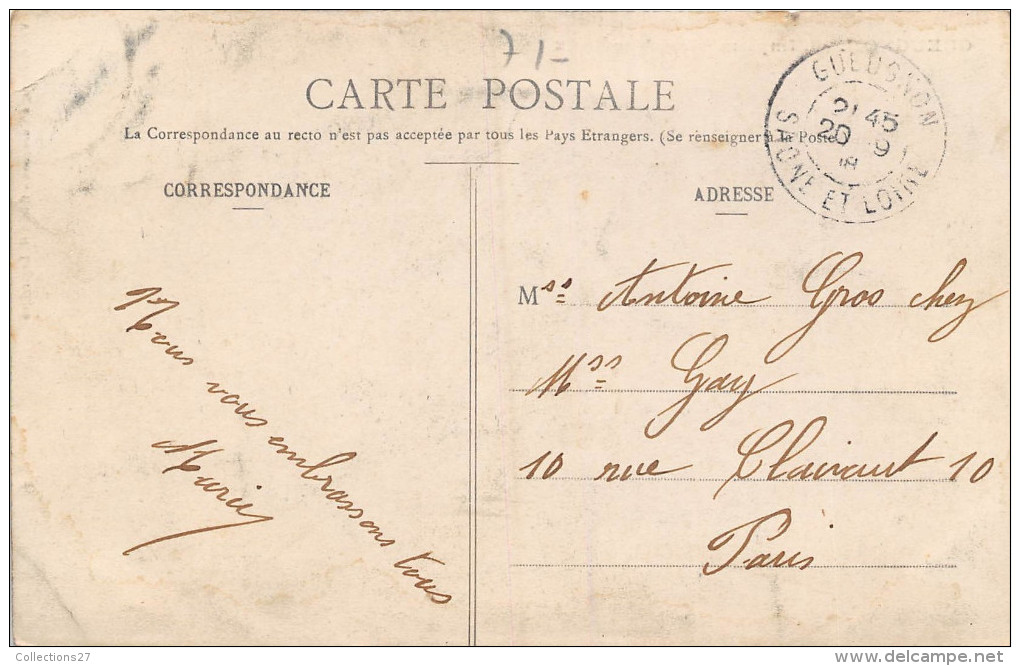 71-
CARTE POSTALE
La Correspondance au recto n'est pas acceptée par tous les Pays Etrangers. (Se renseigner à la Poste
GUEUGNON
21 45
20 9
SAONE ET LOIRE
CORRESPONDANCE
Nous vous embrassons tous
Marie
ADRESSE
Mss Antoine Gros chez
Mss Gay
10 rue Clairaut 10
Paris
Collections27
www.delcampe.net